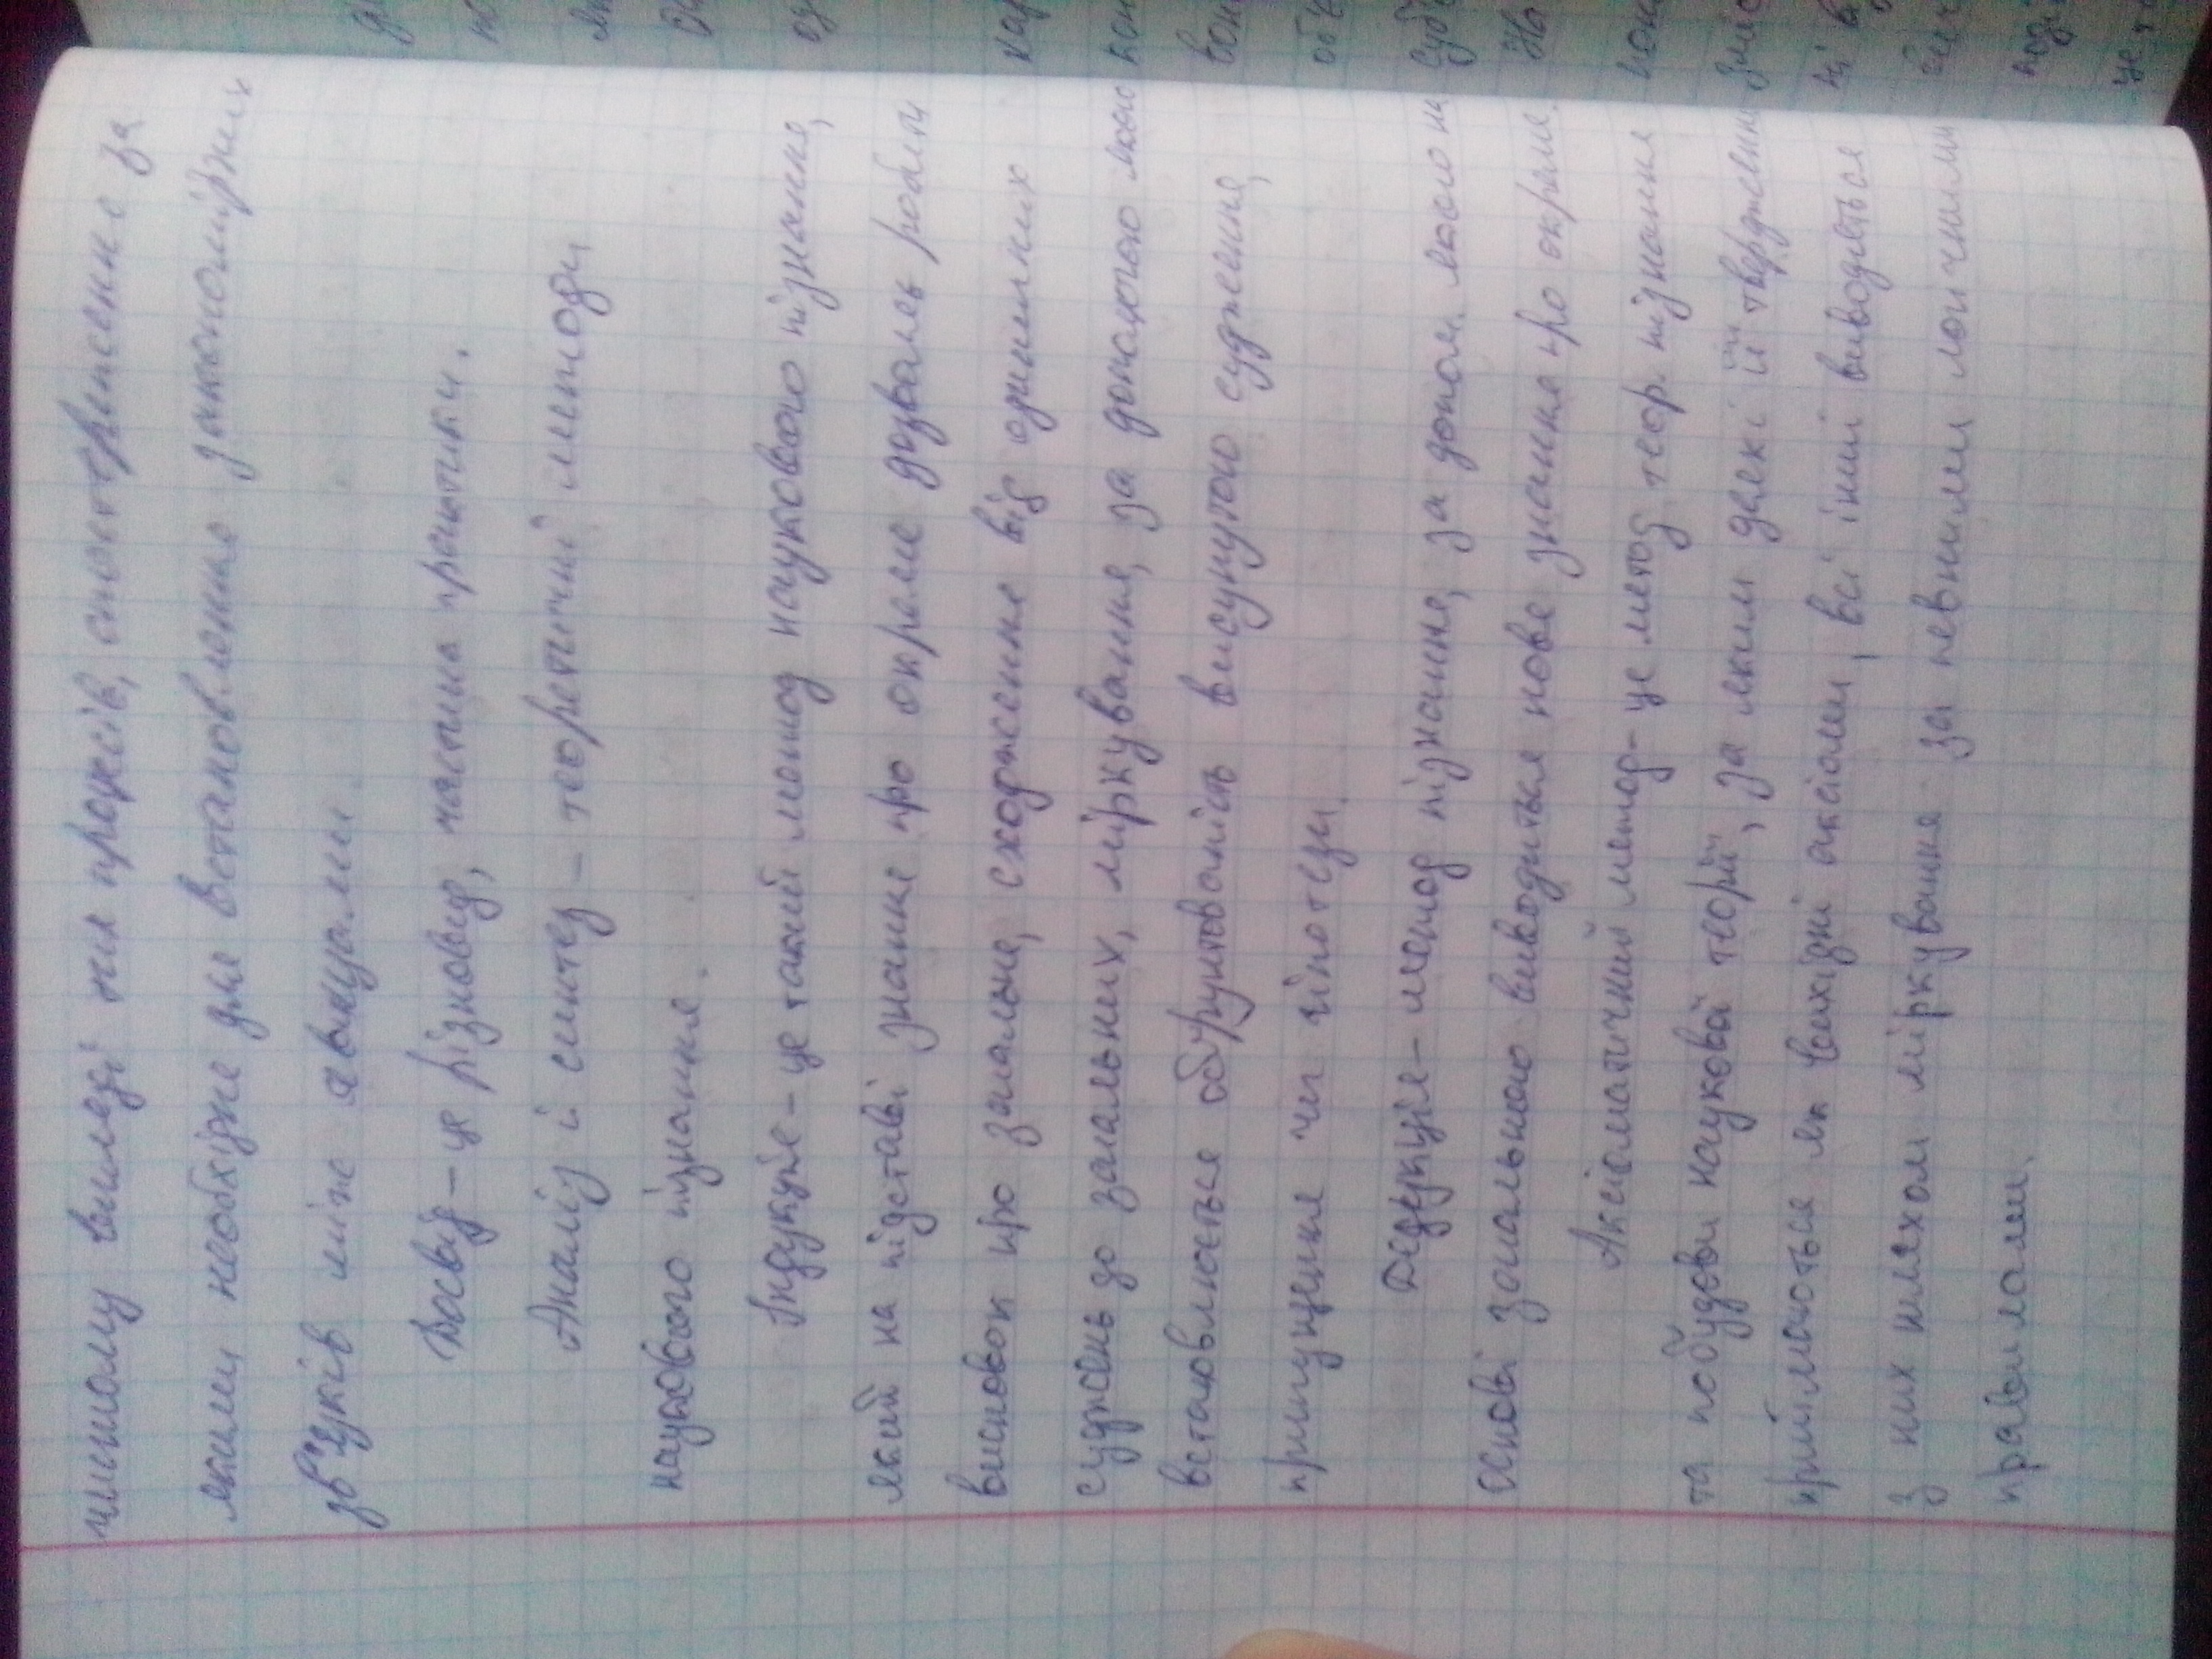 чистому вигляді тих процесів, спостереження за
якими необхідне для встановлення закономірних
зв'язків між явищами.
Досвід – це різновид, частина практики.
Аналіз і синтез – теоретичні методи
наукового пізнання.
Індукція – це такий метод наукового пізнання,
який на підставі знання про окреме дозволяє робити
висновок про загальне, сходження від одиничних
суджень до загальних, міркування, за допомогою якого
встановлюється обґрунтованість висунутого судження,
припущення чи гіпотези.
Дедукція – метод пізнання, за допом. якого на
основі загального виводиться нове знання про окреме.
Аксіоматичний метод – це метод теор. пізнання
та побудови наукової теорії, за яким деякі її твердження
приймаються як вихідні аксіоми, всі інші виводяться
з них шляхом міркування за певними логічними
правилами.